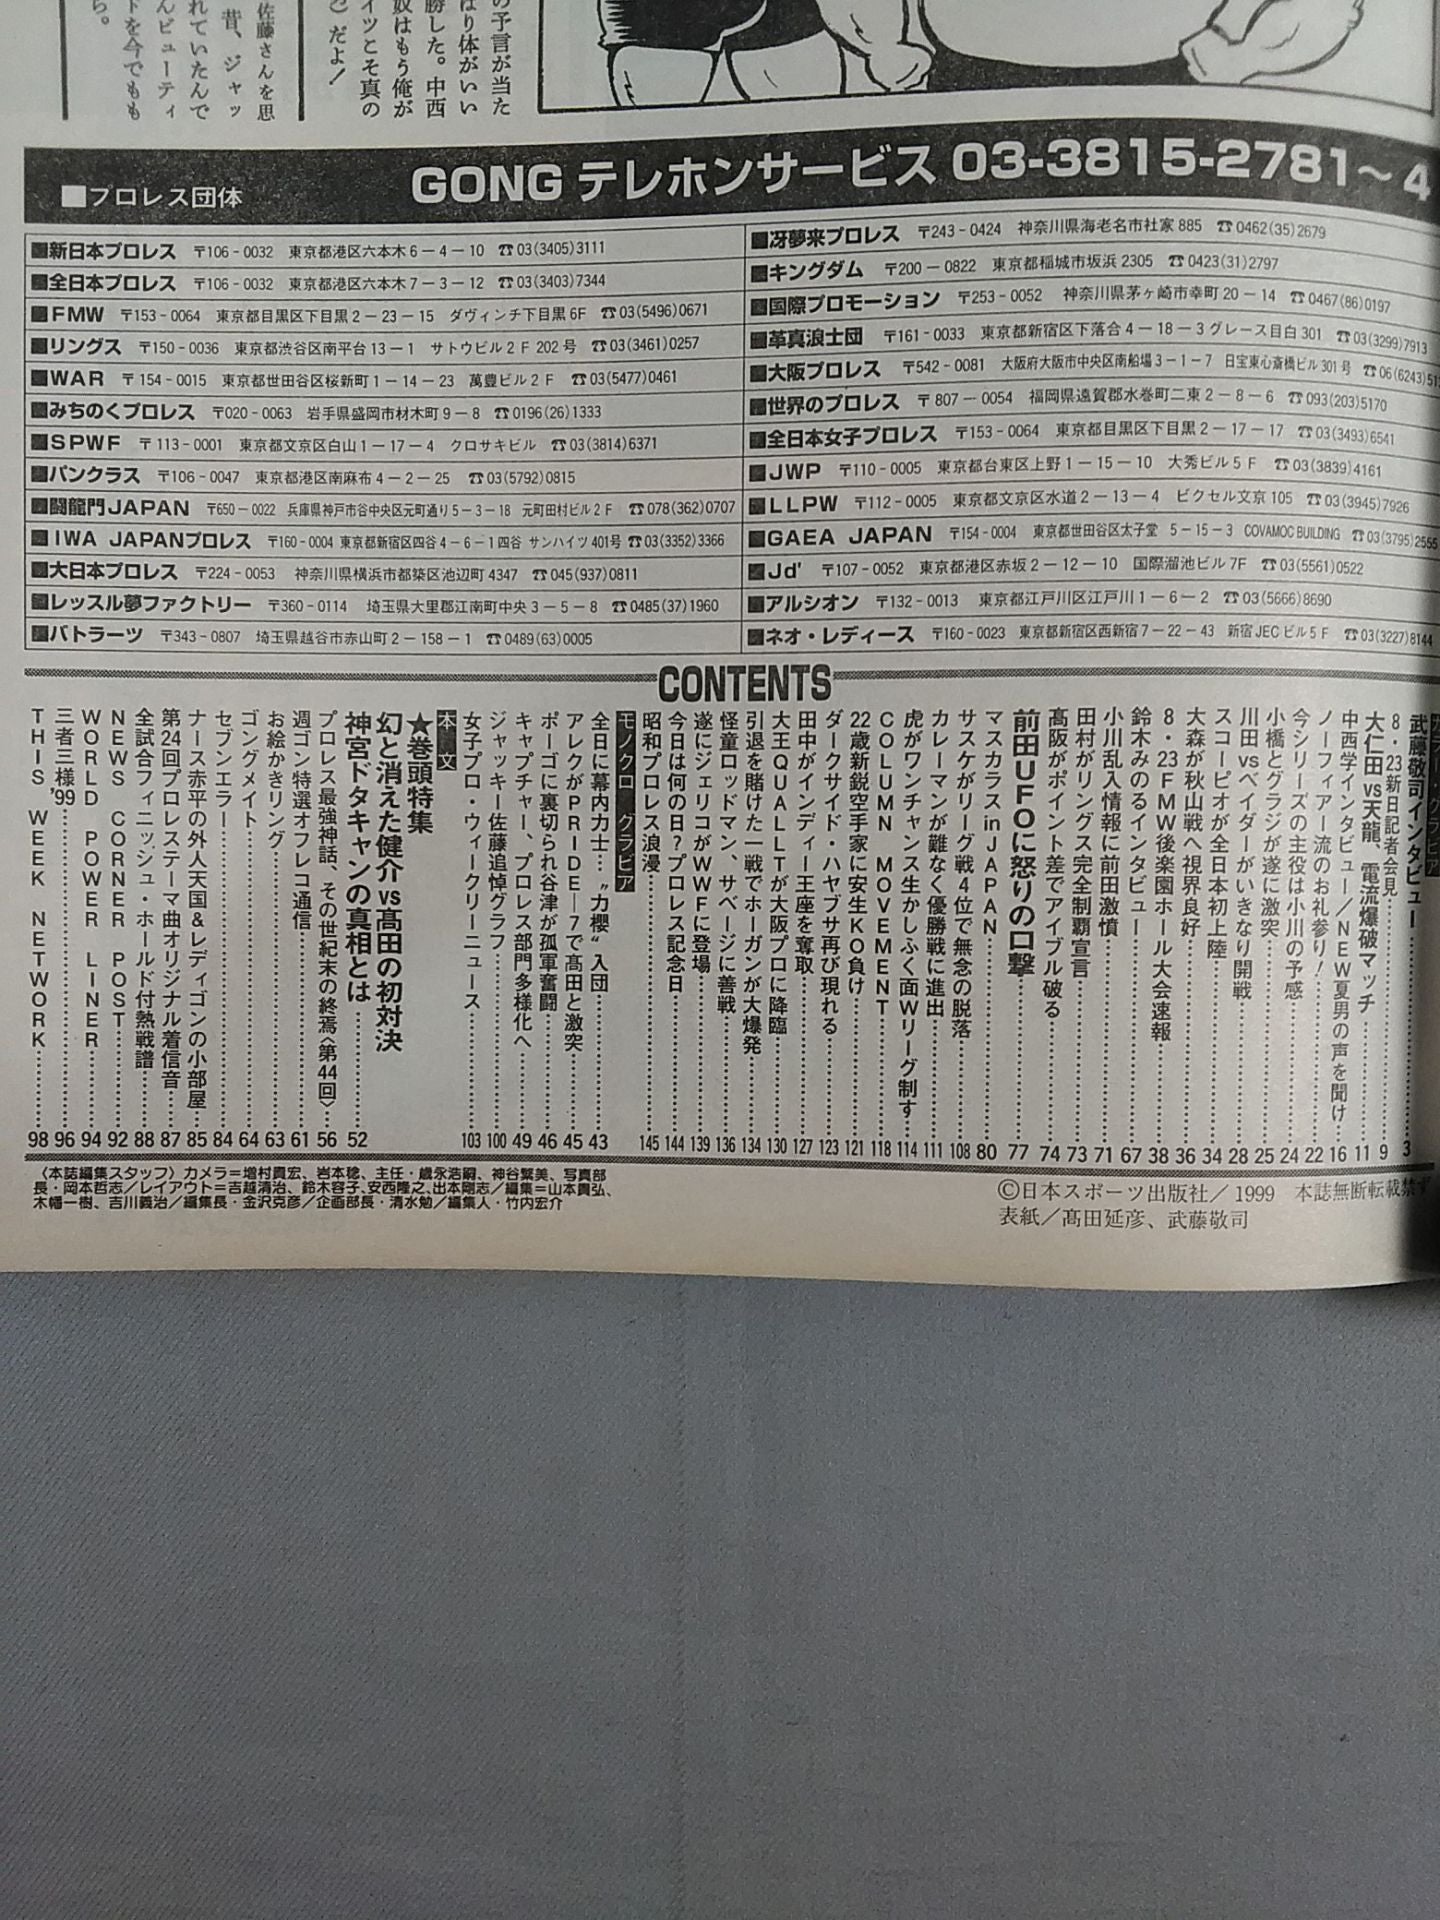 佐藤さんを思
昔、ジャッ
れていたんで
んビューティ
ドを今でもも
ら。
の予言が当た
ぱり体がいい
勝した。中西
奴はもう俺が
イツとそ真の
だよ！
■プロレス団体
GONG テレホンサービス 03-3815-2781～4
■新日本プロレス 〒106-0032 東京都港区六本木6-4-10 ☎03(3405)3111
■全日本プロレス 〒106-0032 東京都港区六本木7-3-12 ☎03(3403)7344
■FMW 〒153-0064 東京都目黒区下目黒2-23-15 ダヴィンチ下目黒6F ☎03(5496)0671
■リングス 〒150-0036 東京都渋谷区南平台13-1 サトウビル2F 202号 ☎03(3461)0257
■WAR 〒154-0015 東京都世田谷区桜新町1-14-23 萬豊ビル2F ☎03(5477)0461
■みちのくプロレス 〒020-0063 岩手県盛岡市材木町9-8 ☎0196(26)1333
■SPWF 〒113-0001 東京都文京区白山1-17-4 クロサキビル ☎03(3814)6371
■パンクラス 〒106-0047 東京都港区南麻布4-2-25 ☎03(5792)0815
■闘龍門JAPAN 〒650-0022 兵庫県神戸市谷中央区元町通り5-3-18 元町田村ビル2F ☎078(362)0707
■IWA JAPANプロレス 〒160-0004 東京都新宿区四谷4-6-1四谷 サンハイツ401号 ☎03(3352)3366
■大日本プロレス 〒224-0053 神奈川県横浜市都築区池辺町4347 ☎045(937)0811
■レッスル夢ファクトリー 〒360-0114 埼玉県大里郡江南町中央3-5-8 ☎0485(37)1960
■バトラーツ 〒343-0807 埼玉県越谷市赤山町2-158-1 ☎0489(63)0005
■冴夢来プロレス 〒243-0424 神奈川県海老名市社家885 ☎0462(35)2679
■キングダム 〒200-0822 東京都稲城市坂浜2305 ☎0423(31)2797
■国際プロモーション 〒253-0052 神奈川県茅ヶ崎市幸町20-14 ☎0467(86)0197
■革真浪士団 〒161-0033 東京都新宿区下落合4-18-3グレース目白301 ☎03(3299)7913
■大阪プロレス 〒542-0081 大阪府大阪市中央区南船場3-1-7 日宝東心斎橋ビル301号 ☎06(6243)51
■世界のプロレス 〒807-0054 福岡県遠賀郡水巻町二東2-8-6 ☎093(203)5170
■全日本女子プロレス 〒153-0064 東京都目黒区下目黒2-17-17 ☎03(3493)6541
■JWP 〒110-0005 東京都台東区上野1-15-10 大秀ビル5F ☎03(3839)4161
■LLPW 〒112-0005 東京都文京区水道2-13-4 ビクセル文京105 ☎03(3945)7926
■GAEA JAPAN 〒154-0004 東京都世田谷区太子堂 5-15-3 COVAMOC BUILDING ☎03(3795)2555
■Jd' 〒107-0052 東京都港区赤坂2-12-10 国際溜池ビル7F ☎03(5561)0522
■アルシオン 〒132-0013 東京都江戸川区江戸川1-6-2 ☎03(5666)8690
■ネオ・レディース 〒160-0023 東京都新宿区西新宿7-22-43 新宿JECビル5F ☎03(3227)8144
CONTENTS
カラー・グラビア
武藤敬司インタビュー……3
8・23新日記者会見……9
大仁田vs天龍、電流爆破マッチ……11
中西学インタビュー／NEW夏男の声を聞け……16
ノーフィアー流のお礼参り！……22
今シリーズの主役は小川の予感……24
小橋とグラジが遂に激突……25
川田vsベイダーがいきなり開戦……28
スコーピオが全日本初上陸……34
大森が秋山戦へ視界良好……36
8・23FMW後楽園ホール大会速報……38
鈴木みのるインタビュー……67
小川乱入情報に前田激憤……71
田村がリングス完全制覇宣言……73
髙阪がポイント差でアイブル破る……74
前田UFOに怒りの口撃……77
マスカラスinJAPAN……80
サスケがリーグ戦4位で無念の脱落……108
カレーマンが難なく優勝戦に進出……111
虎がワンチャンス生かしふく面Wリーグ制す……114
COLUMN MOVEMENT……118
22歳新鋭空手家に安生KO負け……121
ダークサイド・ハヤブサ再び現れる……123
田中がインディー王座を奪取……127
大王QUALLTが大阪プロに降臨……130
引退を賭けた一戦でホーガンが大爆発……134
怪童ロッドマン、サベージに善戦……136
遂にジェリコがWWFに登場……139
今日は何の日？プロレス記念日……144
昭和プロレス浪漫……145
モノクロ グラビア
全日に幕内力士…“力櫻”入団……43
アレクがPRIDE―7で髙田と激突……45
ポーゴに裏切られ谷津が孤軍奮闘……46
キャプチャー、プロレス部門多様化へ……49
ジャッキー佐藤追悼グラフ……100
女子プロ・ウィークリーニュース……103
本文
★巻頭特集
幻と消えた健介vs髙田の初対決
神宮ドタキャンの真相とは……52
プロレス最強神話、その世紀末の終焉〈第44回〉……56
週ゴン特選オフレコ通信……61
お絵かきリング……63
ゴングメイト……64
セブンエラー……84
ナース赤平の外人天国＆レディゴンの小部屋……85
第24回プロレステーマ曲オリジナル着信音……87
全試合フィニッシュ・ホールド付熱戦譜……88
NEWS CORNER POST……92
WORLD POWER LINER……94
三者三様'99……96
THIS WEEK NETWORK……98
〈本誌編集スタッフ〉カメラ＝増村貴宏、岩本稔、主任・歳永浩嗣、神谷繁美、写真部
長・岡本哲志／レイアウト＝吉越清治、鈴木容子、安西隆之、出本剛志／編集＝山本貴弘、
木幡一樹、吉川義治／編集長・金沢克彦／企画部長・清水勉／編集人・竹内宏介
©日本スポーツ出版社／1999 本誌無断転載禁ず
表紙／髙田延彦、武藤敬司